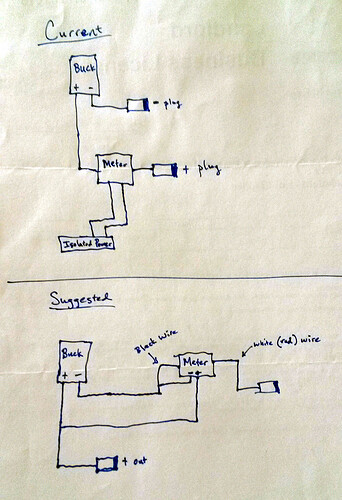 Current
Buck
+ -
- plug
Meter
+ plug
Isolated Power
Suggested
Buck
+ -
Black wire
Meter
- +
white (red) wire
+ out